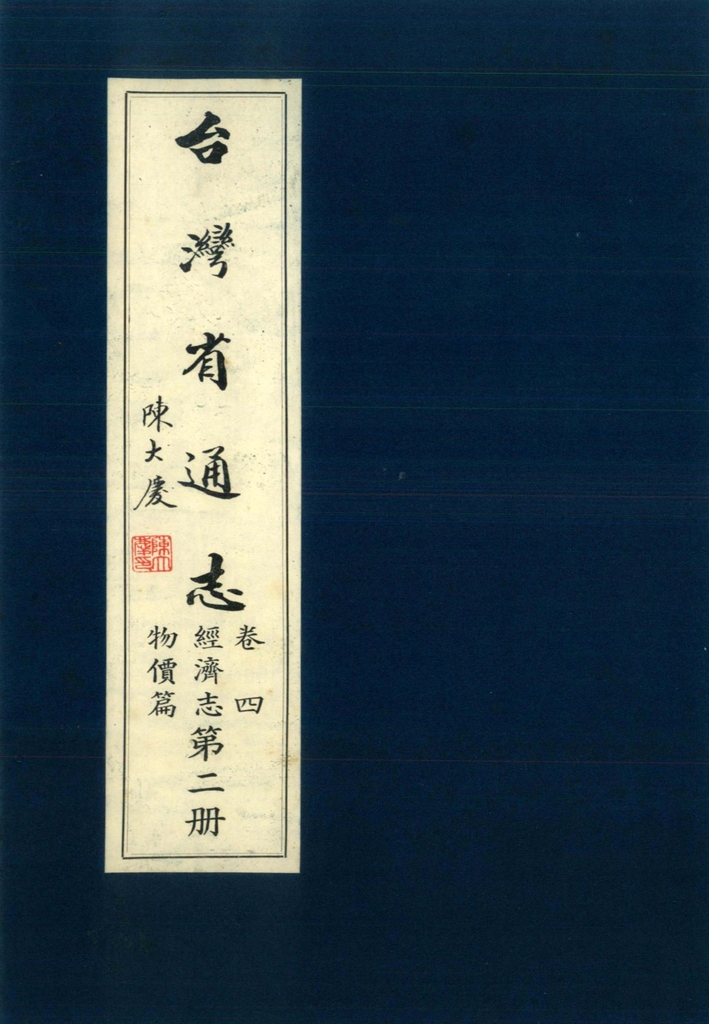 台灣省通志
卷四
經濟志第二册
物價篇
陳大慶
陳大慶印